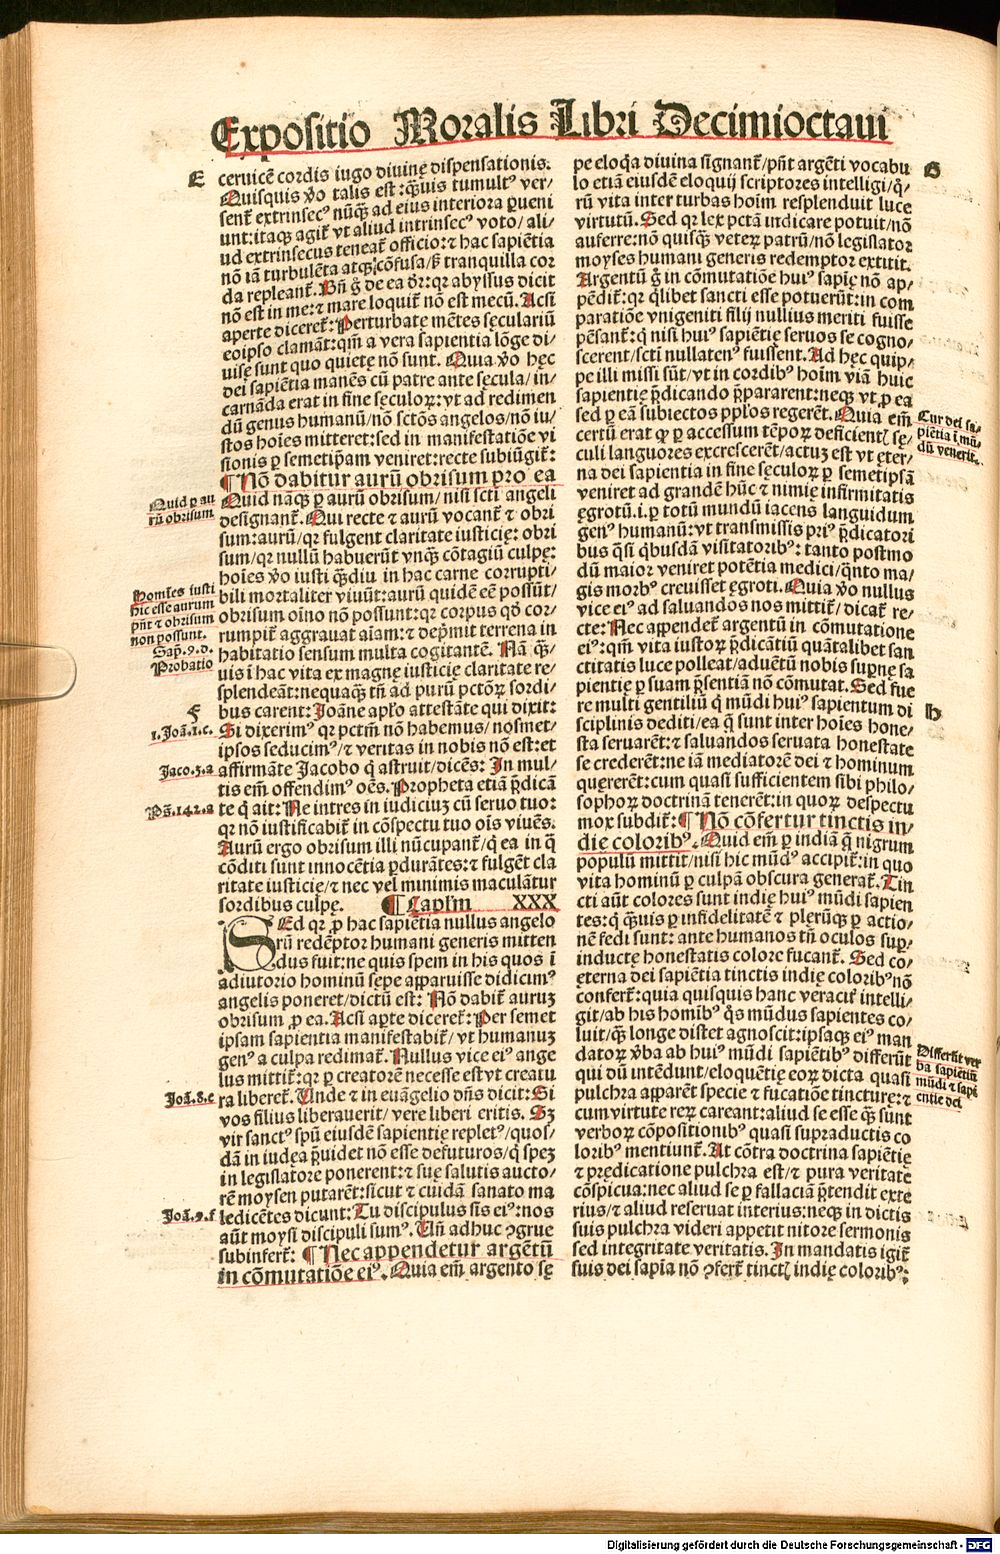 Expositio Moralis Libri Decimioctaui
E
ceruicẽ cordis iugo diuinę dispensationis.
Quisquis ỽo talis est: q̃uis tumultꝰ ver/
sent̃ extrinsecꝰ nũq̃ ad eius interiora ꝑueni
unt: itaq̃ agit̃ vt aliud intrinsecꝰ voto/ ali/
ud extrinsecus teneat̃ officio: ⁊ hac sapiẽtia
nõ iã turbulẽta atq̃ cõfusa/ s̃ tranquilla cor
da repleant̃. Bñ g̃ de ea dr̃: qꝛ abyssus dicit
nõ est in me: ⁊ mare loquit̃ nõ est mecũ. Acsi
aperte diceret̃: Perturbatę mẽtes sęculariũ
eoipso clamãt: qm̃ a vera sapientia lõge di/
uisę sunt quo quietę nõ sunt. Quia ỽo hęc
dei sapiẽtia manẽs cũ patre ante sęcula/ in/
carnãda erat in fine sęculoꝝ: vt ad redimen
dũ genus humanũ/ nõ sctõs angelos/ nõ iu/
stos hoĩes mitteret: sed in manifestatiõe vi
sionis ꝑ semetip̃am veniret: recte subiũgit̃:
¶ Nõ dabitur aurũ obrisum pro ea
Quid nãq̃ ꝑ aurũ obrisum/ nisi scti angeli
designant̃. Qui recte ⁊ aurũ vocant̃ ⁊ obri
sum: aurũ/ qꝛ fulgent claritate iusticię: obri
sum/ qꝛ nullũ habuerũt vnq̃ cõtagiũ culpę:
hoĩes ỽo iusti q̃diu in hac carne corrupti/
bili mortaliter viuũt: aurũ quidẽ eẽ possũt/
obrisum oĩno nõ possunt: qꝛ corpus qd̃ cor/
rumpit̃ aggrauat aĩam: ⁊ dep̃mit terrena in
habitatio sensum multa cogitantẽ. Nã q̃/
uis ĩ hac vita ex magnę iusticię claritate re/
splendeãt: nequaq̃ tñ ad purũ pctõꝝ sordi/
bus carent: Joãne ap̃lo attestãte qui dixit:
Si dixerimꝰ qꝛ pctm̃ nõ habemus/ nosmet/
ipsos seducimꝰ/ ⁊ veritas in nobis nõ est: et
affirmãte Jacobo q̃ astruit/ dicẽs: In mul/
tis em̃ offendimꝰ oẽs. Propheta etiã p̃dicã
te q̃ ait: Ne intres in iudiciuꝫ cũ seruo tuo:
qꝛ nõ iustificabit̃ in cõspectu tuo oĩs viuẽs.
Aurũ ergo obrisum illi nũcupant̃/ q̃ ea in q̃
cõditi sunt innocẽtia ꝑdurãtes: ⁊ fulgẽt cla
ritate iusticię/ ⁊ nec vel minimis maculãtur
sordibus culpę. ¶ Caplm̃ XXX
SEd qꝛ ꝓ hac sapiẽtia nullus angelo
rũ redẽptor humani generis mitten
dus fuit: ne quis spem in his quos ĩ
adiutorio hominũ sępe apparuisse didicimꝰ
angelis poneret/ dictũ est: Nõ dabit̃ auruꝫ
obrisum ꝓ ea. Acsi aꝑte diceret̃: Per semet
ipsam sapientia manifestabit̃/ vt humanuꝫ
genꝰ a culpa redimat̃. Nullus vice eiꝰ ange
lus mittit̃: qꝛ ꝑ creatorẽ necesse est vt creatu
ra liberet̃. Unde ⁊ in euãgelio dñs dicit: Si
vos filius liberauerit/ vere liberi eritis. Sꝫ
vir sanctꝰ spũ eiusdẽ sapientię repletꝰ/ quos/
dã in iudęa p̃uidet nõ esse defuturos/ q̃ speꝫ
in legislatore ponerent: ⁊ suę salutis aucto/
rẽ moysen putarẽt: sicut ⁊ cuidã sanato ma
ledicẽtes dicunt: Tu discipulus sis eiꝰ: nos
aũt moysi discipuli sumꝰ. Uñ adhuc ꝯgrue
subinfert̃: ¶ Nec appendetur argẽtũ
in cõmutatiõe eiꝰ. Quia em̃ argento sę
Quid ꝑ au
rũ obrisum
Homĩes iusti
hic esse aurum
pñt ⁊ obrisum
non possunt.
Sap̃.9.d.
Probatio
F
1.Joã.1.c.
Jaco.3.a
Ps̃.142.a
Joã.8.e
Joã.9.f
pe eloq̃a diuina signant̃/ pñt argẽti vocabu
lo etiã eiusdẽ eloquij scriptores intelligi/ q̃/
rũ vita inter turbas hoĩm resplenduit luce
virtutũ. Sed qꝛ lex pctã indicare potuit/ nõ
auferre: nõ quisq̃ veteꝝ patrũ/ nõ legislator
moyses humani generis redemptor extitit.
Argentũ g̃ in cõmutatiõe huiꝰ sapię nõ ap/
pẽdit̃: qꝛ q̃libet sancti esse potuerũt: in com
paratiõe vnigeniti filij nullius meriti fuisse
pẽsant̃: q̃ nisi huiꝰ sapiẽtię seruos se cogno/
scerent/ scti nullatenꝰ fuissent. Ad hęc quip/
pe illi missi sũt/ vt in cordibꝰ hoĩm viã huic
sapientię p̃dicando p̃pararent: neq̃ vt ꝓ ea
sed ꝑ eã subiectos pp̃los regerẽt. Quia em̃
certũ erat ꝙ ꝑ accessum tẽpoꝝ deficientꝭ sę/
culi languores excrescerẽt/ actuꝫ est vt ęter/
na dei sapientia in fine sęculoꝝ ꝑ semetipsã
veniret ad grandẽ hũc ⁊ nimię infirmitatis
ęgrotũ. i. ꝑ totũ mundũ iacens languidum
genꝰ humanũ: vt transmissis priꝰ p̃dicatori
bus q̃si q̃busdã visitatoribꝰ: tanto postmo
dũ maior veniret potẽtia medici/ q̃nto ma/
gis morbꝰ creuisset ęgroti. Quia ỽo nullus
vice eiꝰ ad saluandos nos mittit̃/ dicat̃ re/
cte: Nec appendet̃ argentũ in cõmutatione
eiꝰ: qm̃ vita iustoꝝ p̃dicãtiũ quãtalibet san
ctitatis luce polleat/ aduẽtũ nobis supnę sa
pientię ꝑ suam p̃sentiã nõ cõmutat. Sed fue
re multi gentiliũ q̃ mũdi huiꝰ sapientum di
sciplinis dediti/ ea q̃ sunt inter hoĩes hone/
sta seruarẽt: ⁊ saluandos seruata honestate
se crederẽt: ne iã mediatorẽ dei ⁊ hominum
quęrerẽt: cum quasi sufficientem sibi philo/
sophoꝝ doctrinã tenerẽt: in quoꝝ despectu
mox subdit̃: ¶ Nõ cõfertur tinctis in/
dię coloribꝰ. Quid em̃ ꝑ indiã q̃ nigrum
populũ mittit/ nisi hic mũdꝰ accipit̃: in quo
vita hominũ ꝑ culpã obscura generat̃. Tin
cti aũt colores sunt indię huiꝰ mũdi sapien
tes: q̃ q̃uis ꝑ infidelitatẽ ⁊ plerũq̃ ꝑ actio/
nẽ fedi sunt: ante humanos tñ oculos suꝑ/
inductę honestatis colore fucant̃. Sed co/
ęterna dei sapiẽtia tinctis indię coloribꝰ nõ
confert̃: quia quisquis hanc veracit̃ intelli/
git/ ab his homĩbꝰ q̃s mũdus sapientes co/
luit/ q̃ longe distet agnoscit: ipsaq̃ eiꝰ man
datoꝝ ỽba ab huiꝰ mũdi sapiẽtibꝰ differũt
qui dũ intẽdunt/ eloquẽtię eoꝝ dicta quasi
pulchra apparẽt specie ⁊ fucatiõe tincturę: ⁊
cum virtute reꝝ careant: aliud se esse q̃ sunt
verboꝝ cõpositionibꝰ quasi supraductis co
loribꝰ mentiunt̃. At cõtra doctrina sapiẽtię
⁊ prędicatione pulchra est/ ⁊ pura veritate
cõspicua: nec aliud se ꝑ fallaciã p̃tendit exte
rius/ ⁊ aliud reseruat interius: neq̃ in dictis
suis pulchra videri appetit nitore sermonis
sed integritate veritatis. In mandatis igit̃
suis dei sap̃ia nõ ꝯfert̃ tinctꝭ indię coloribꝰ:
G
Cur dei sa/
piẽtia ĩ mũ/
dũ venerit.
H
Differũt ver
ba sapiẽtiũ
mũdi ⁊ sapi
entie dei
Digitalisierung gefördert durch die Deutsche Forschungsgemeinschaft - DFG